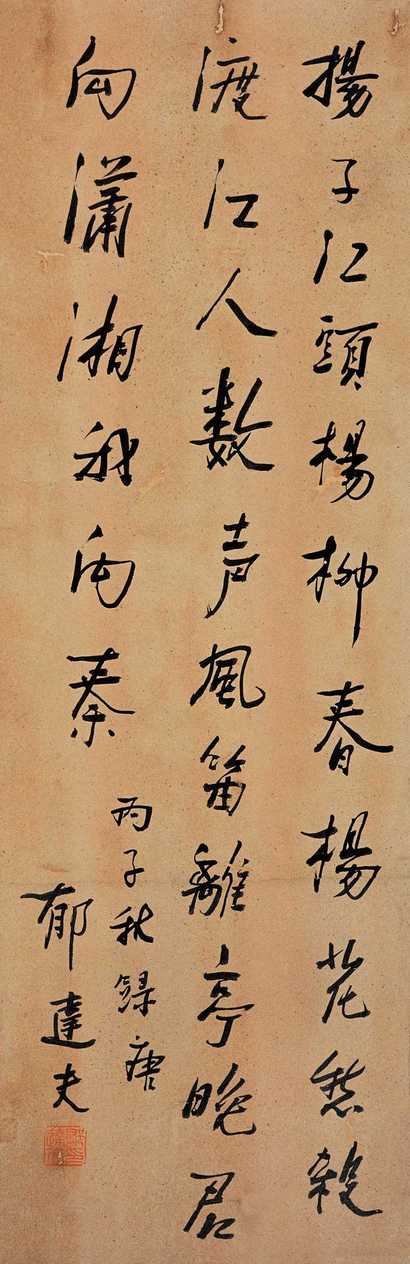 揚子江頭楊柳春楊花愁殺
渡江人數声風笛離亭晚君
向瀟湘我向秦
丙子秋録唐
郁達夫